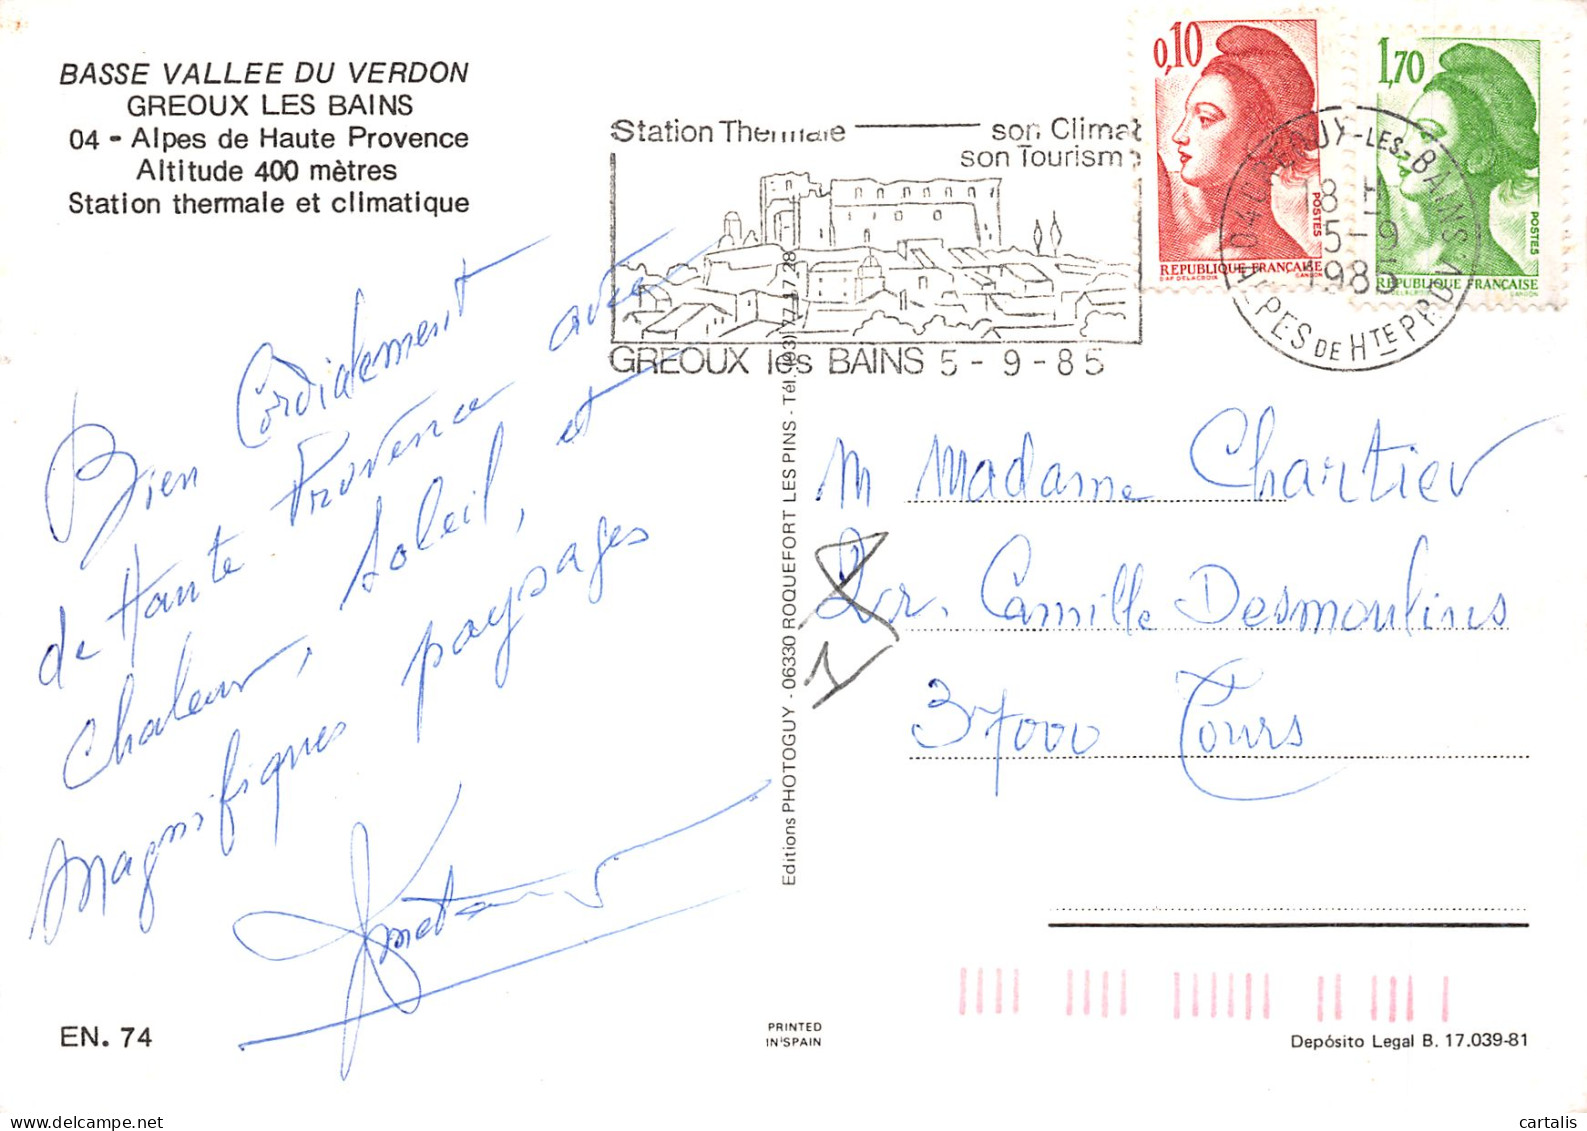 BASSE VALLEE DU VERDON
GREOUX LES BAINS
04 - Alpes de Haute Provence
Altitude 400 mètres
Station thermale et climatique
Station Thermale son Climat
son Tourism
GREOUX les BAINS 5 - 9 - 85
0,10
POSTES
REPUBLIQUE FRANÇAISE
D'AP DELACROIX GANDON
1,70
POSTES
REPUBLIQUE FRANÇAISE
GANDON
-LES-BAINS
18 H
5-9
1985
ALPES DE HTE PR
Bien Cordialement
de Haute Provence avec
Chaleur, Soleil, et
Magnifiques paysages
Editions PHOTOGUY - 06330 ROQUEFORT LES PINS - Tél. (93) 77.17.28
M Madame Chartier
Camille Desmoulins
37000 Tours
EN. 74
PRINTED
IN SPAIN
Depósito Legal B. 17.039-81
cartalis